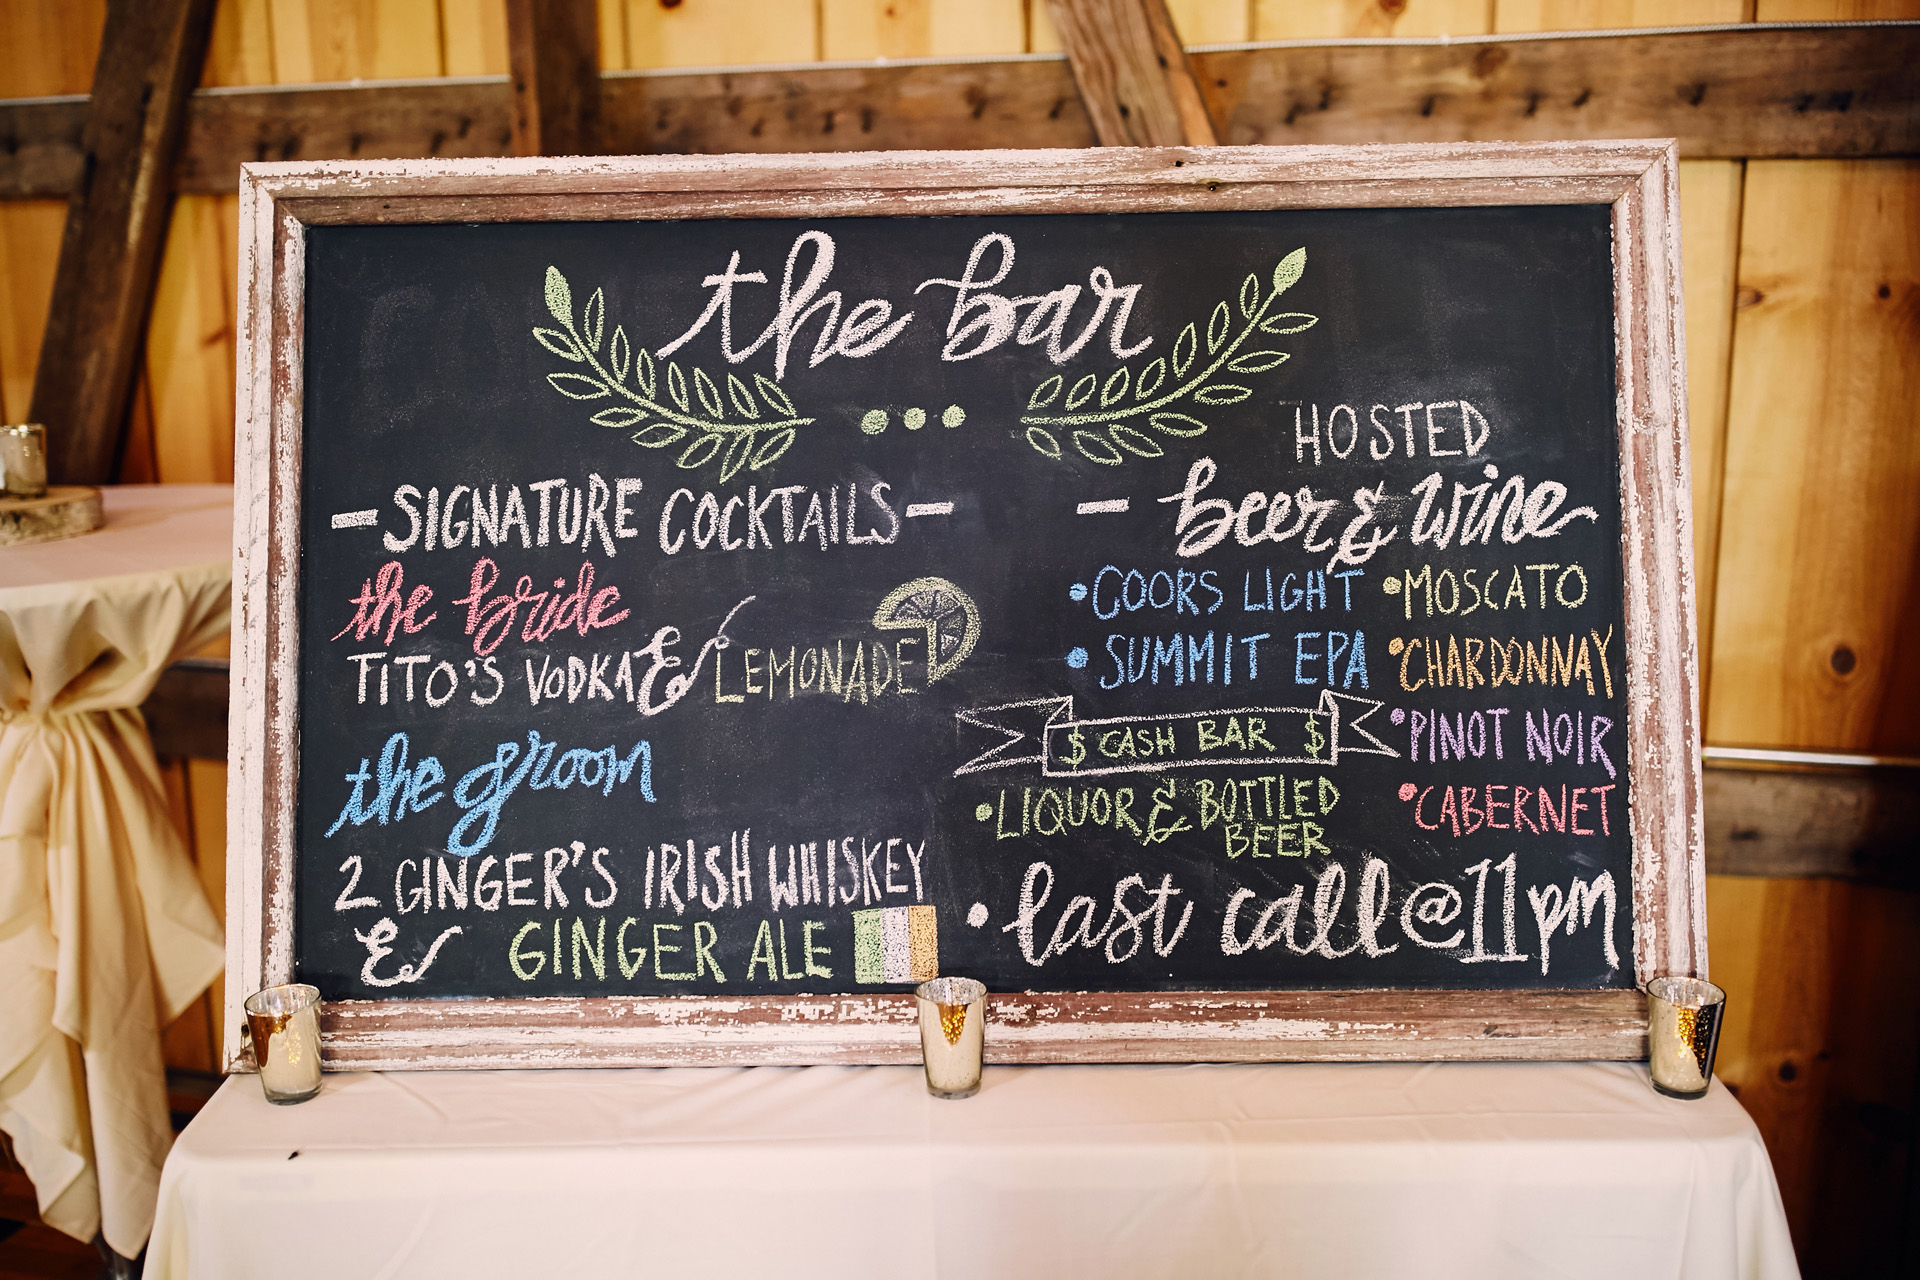 the bar
-SIGNATURE COCKTAILS-
the bride
TITO'S VODKA & LEMONADE
the groom
2 GINGER'S IRISH WHISKEY
& GINGER ALE
HOSTED
- beer & wine
•COORS LIGHT
•SUMMIT EPA
•MOSCATO
•CHARDONNAY
•PINOT NOIR
•CABERNET
$ CASH BAR $
•LIQUOR & BOTTLED
BEER
•last call@11pm